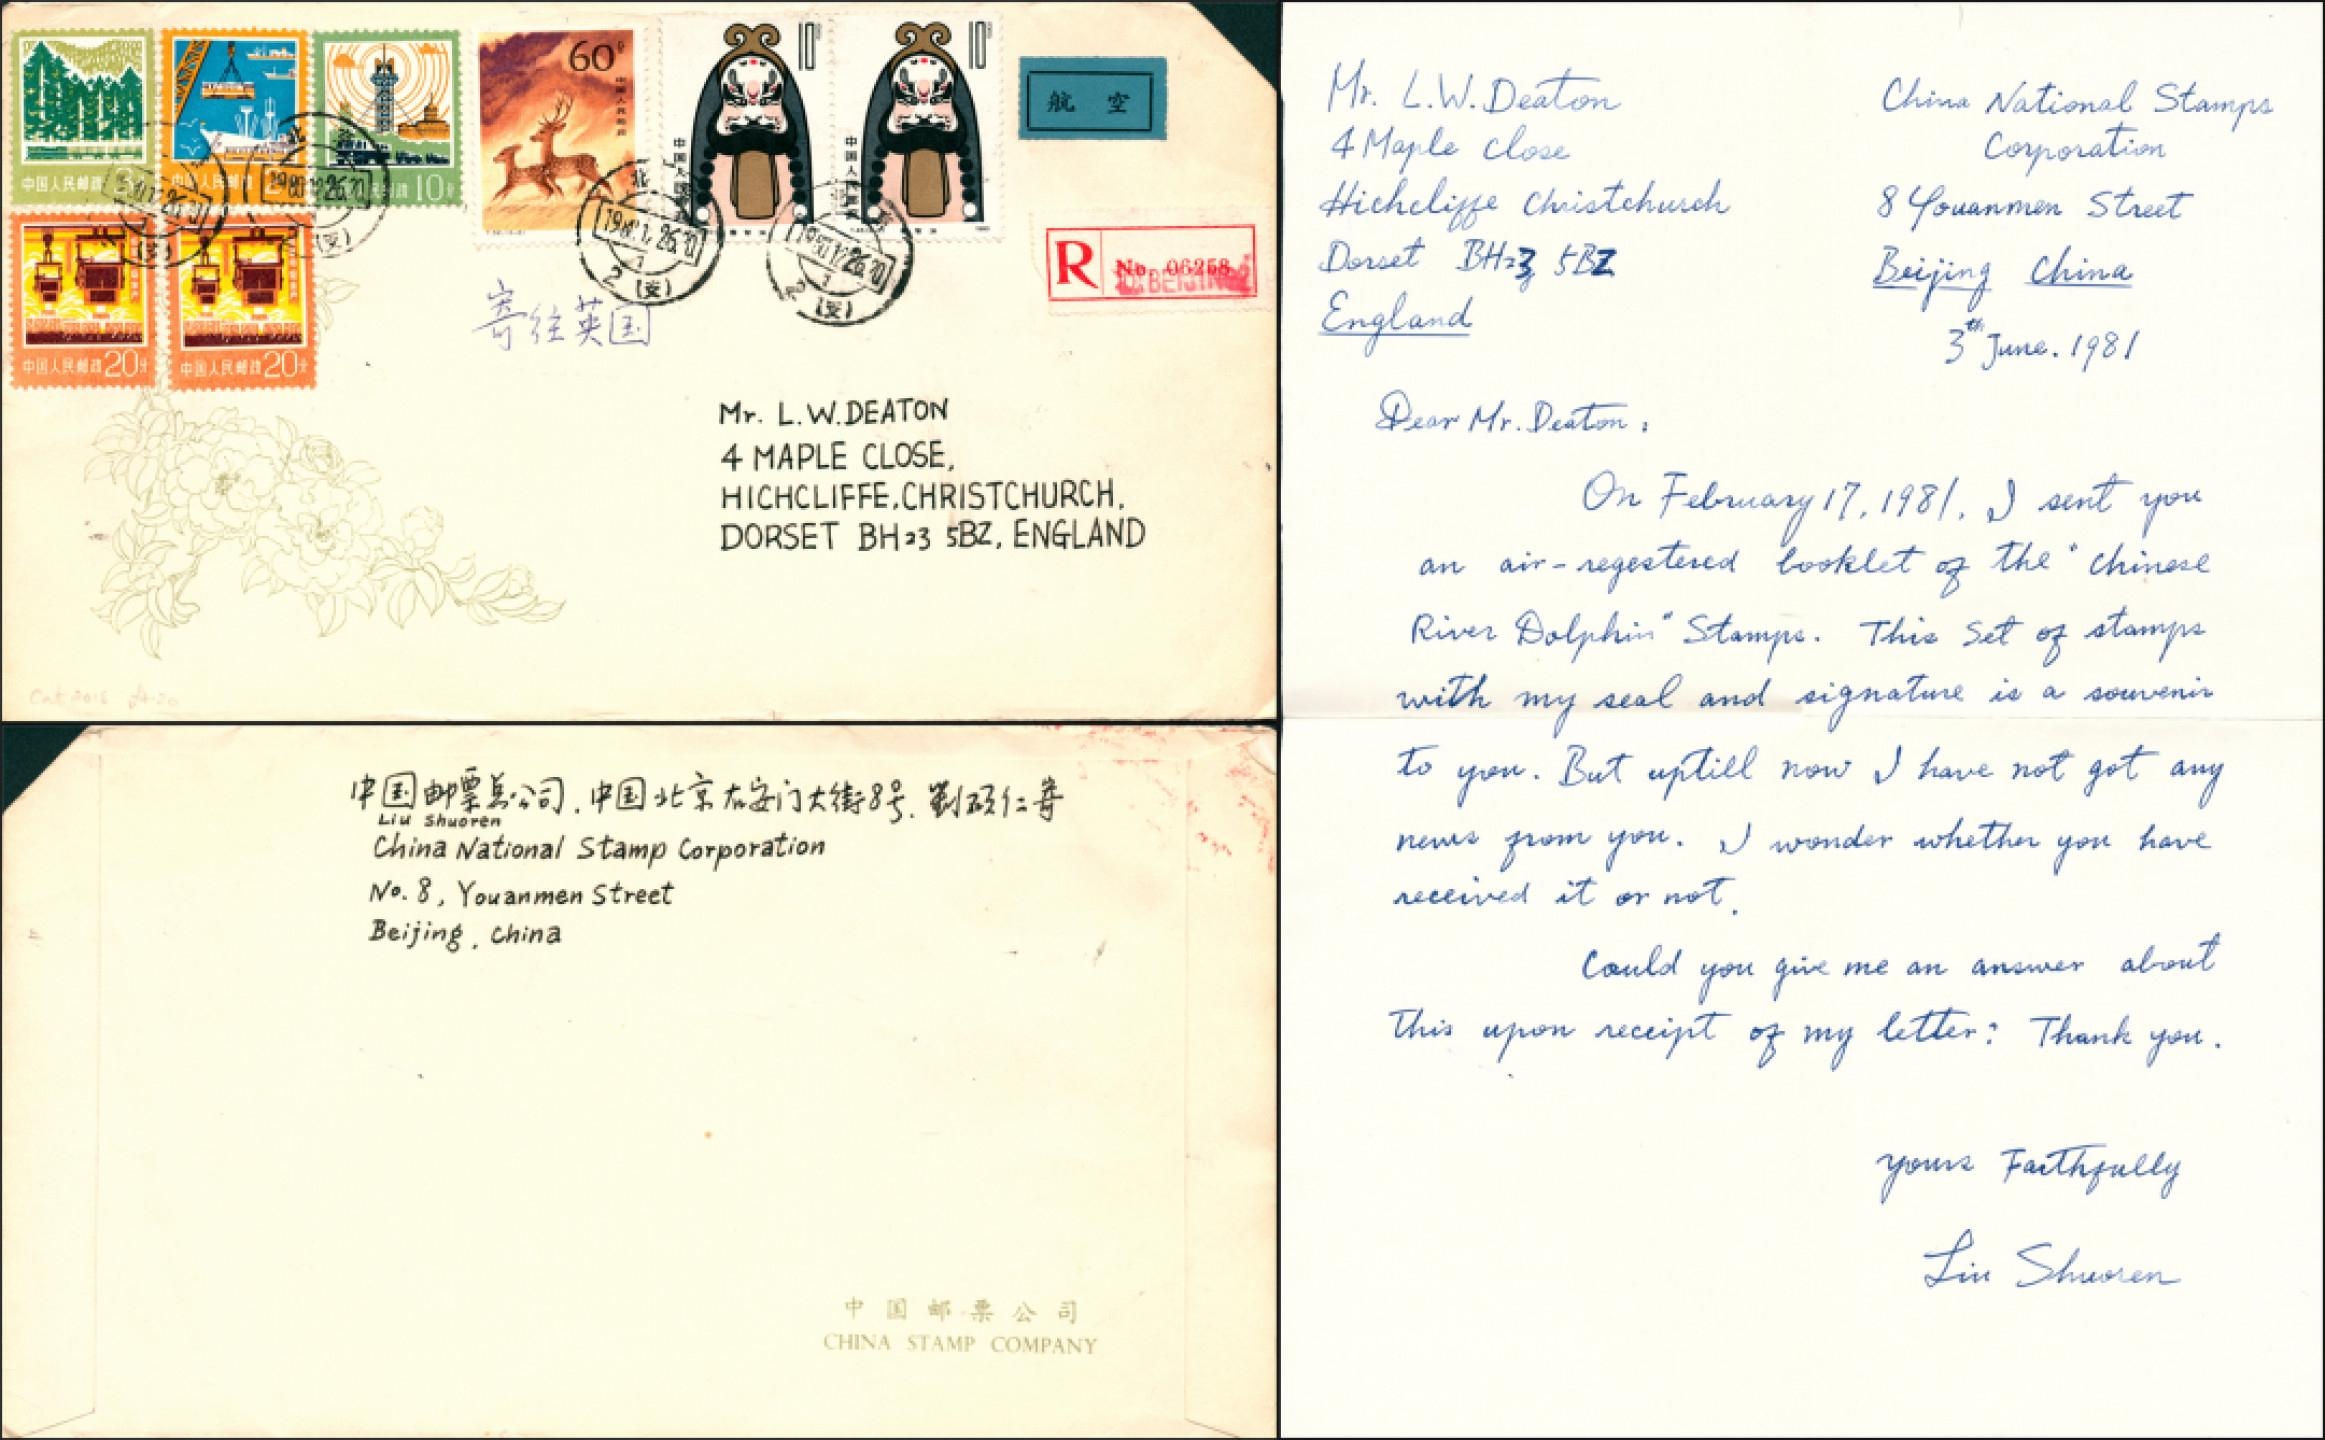 60分
中国人民邮政
10分
10分
航 空
中国人民邮政
中国人民邮政 10分
R No. 06258
BEIJING
中国人民邮政 20分
中国人民邮政 20分
寄往英国
Mr. L.W.DEATON
4 MAPLE CLOSE,
HICHCLIFFE,CHRISTCHURCH,
DORSET BH23 5BZ, ENGLAND
中国邮票总公司.中国北京右安门大街8号.劉硕仁寄
Liu Shuoren
China National Stamp Corporation
No. 8, Youanmen Street
Beijing, China
中国邮票公司
CHINA STAMP COMPANY
Mr. L.W.Deaton
4 Maple Close
Hichcliffe Christchurch
Dorset BH23 5BZ
England
China National Stamps
Corporation
8 Youanmen Street
Beijing China
3th June. 1981
Dear Mr. Deaton:
On February 17, 1981, I sent you
an air-regestered booklet of the "Chinese
River Dolphin" Stamps. This Set of stamps
with my seal and signature is a souvenir
to you. But uptill now I have not got any
news from you. I wonder whether you have
received it or not.
Could you give me an answer about
this upon receipt of my letter? Thank you.
yours Faithfully
Liu Shuoren